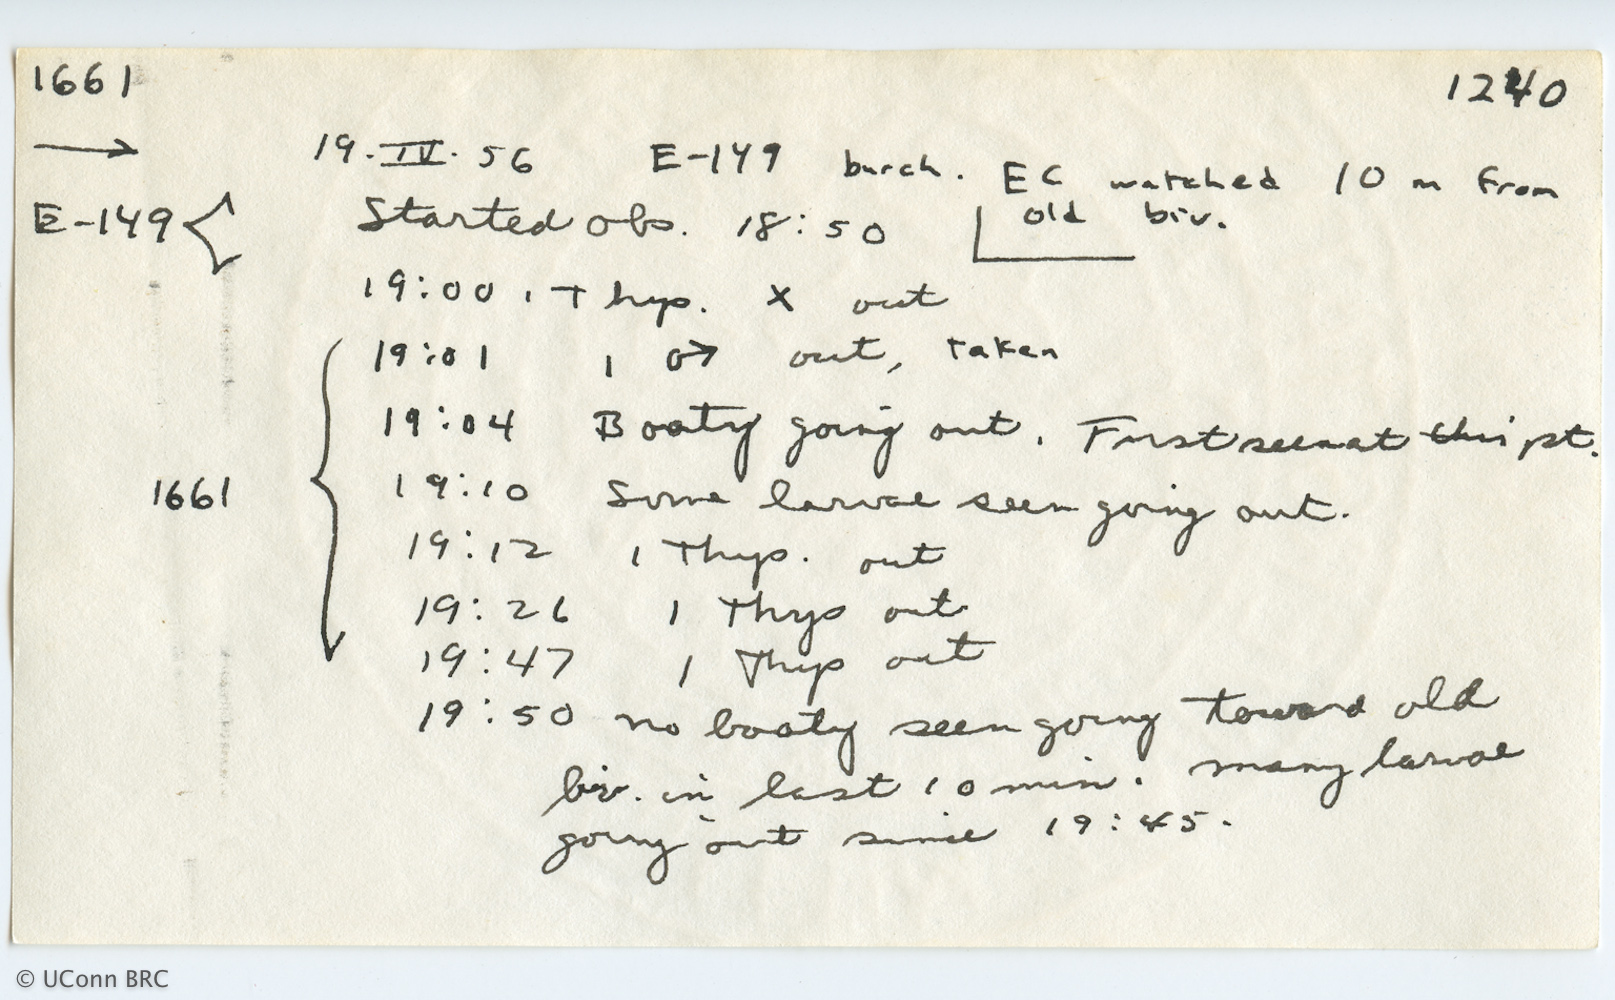 1661
1240
→ 19.IV.56 E-149 burch. EC watched 10 m from
old biv.
E-149 { Started obs. 18:50
19:00 1 Thys. X out
19:01 1 ♂ out, taken
19:04 Booty going out. First seen at this pt.
1661 { 19:10 Some larvae seen going out.
19:12 1 Thys. out
19:26 1 Thys out
19:47 1 Thys out
19:50 no booty seen going toward old
biv. in last 10 min. many larvae
going out since 19:45.
© UConn BRC